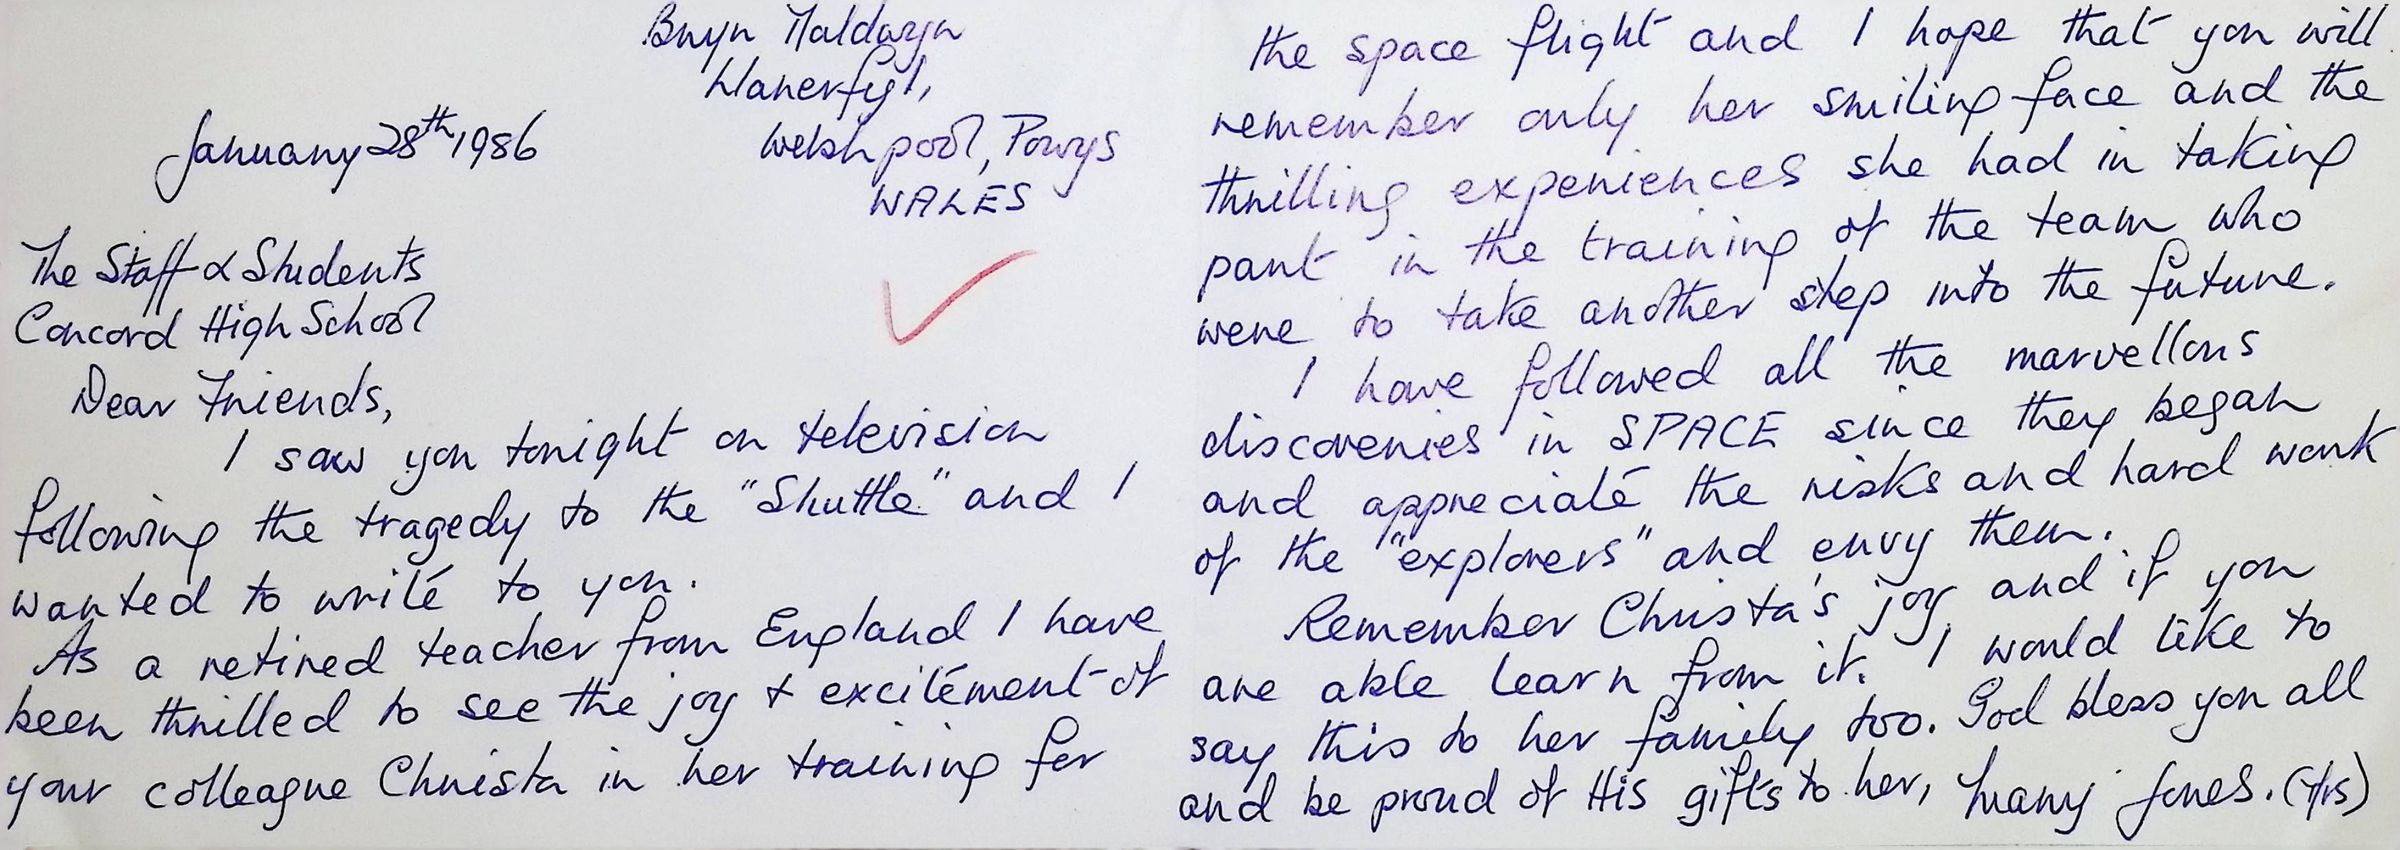 Bryn Maldwyn
Llanerfyl,
January 28th, 1986
Welshpool, Powys
WALES
The Staff & Students
Concord High School
Dear Friends,
I saw you tonight on television
following the tragedy to the "Shuttle" and I
wanted to write to you.
As a retired teacher from England I have
been thrilled to see the joy & excitement of
your colleague Christa in her training for
the space flight and I hope that you will
remember only her smiling face and the
thrilling experiences she had in taking
part in the training of the team who
were to take another step into the future.
I have followed all the marvellous
discoveries in SPACE since they began
and appreciate the risks and hard work
of the "explorers" and envy them.
Remember Christa's joy and if you
are able learn from it. I would like to
say this to her family too. God bless you all
and be proud of His gifts to her, Mary Jones. (Mrs)